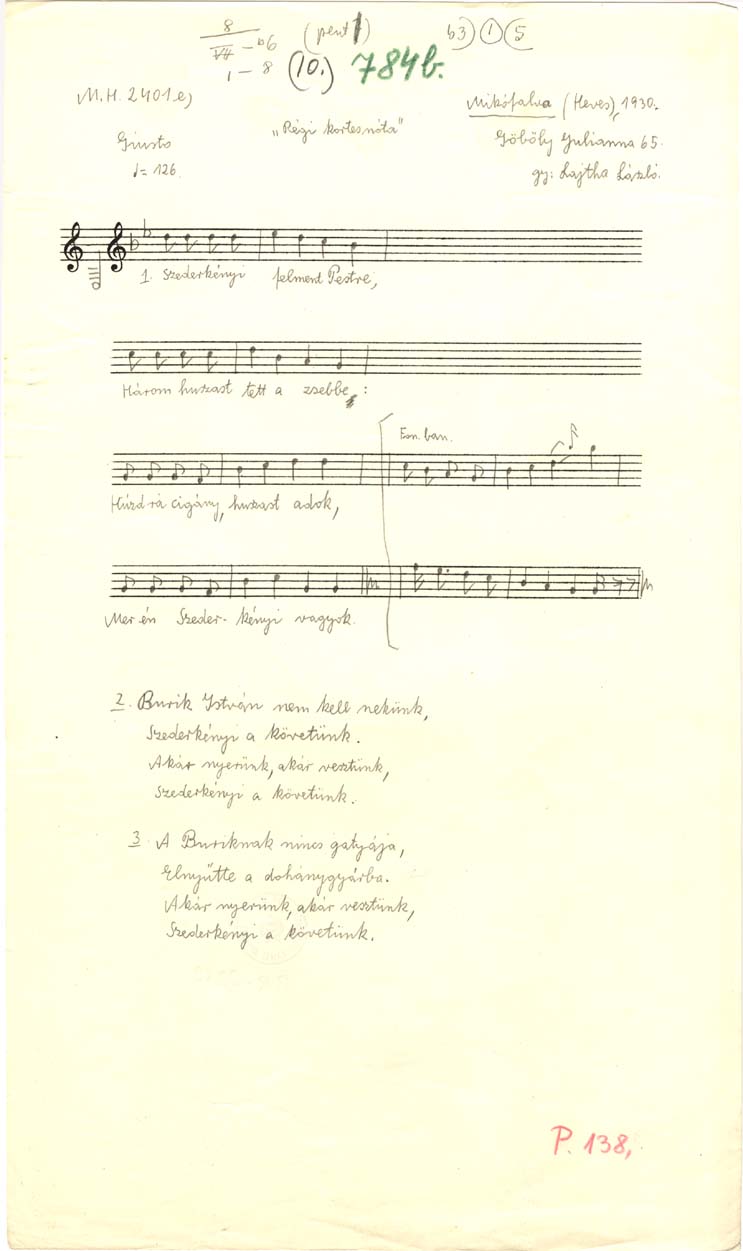 8 (pent 1) b3) 1 5
VII – b6
1 – 8 (10.) 784b.
M.H. 2401.e) Mikófalva (Heves), 1930.
Giusto „Régi kortesnóta" Göböly Julianna 65.
♩= 126. gy: Lajtha László.
1. Szederkényi felment Pestre,
Három huszast tett a zsebbe:
Húzd rá cigány, huszast adok,
Mer én Szeder- kényi vagyok.
2. Burik István nem kell nekünk,
Szederkényi a követünk.
Akár nyerünk, akár vesztünk,
Szederkényi a követünk.
3. A Buriknak nincs gatyája,
Elnyűtte a dohánygyárba.
Akár nyerünk, akár vesztünk,
Szederkényi a követünk.
P. 138,